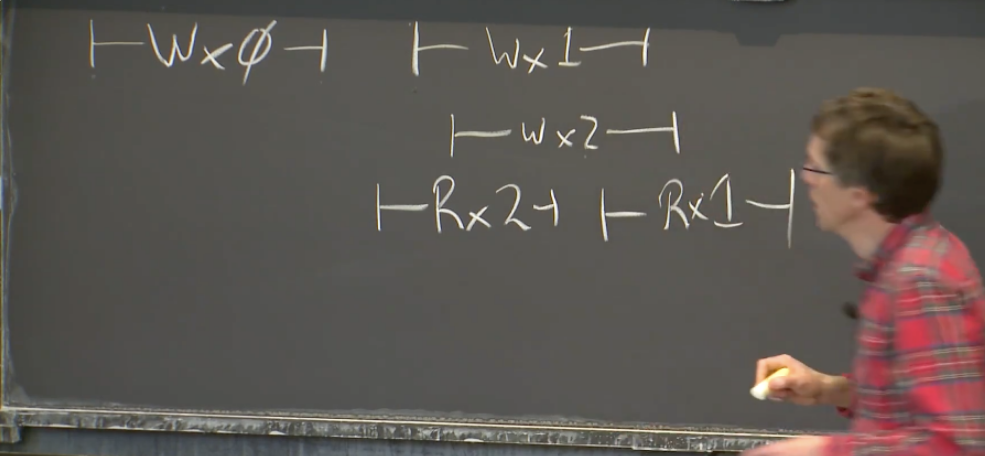 |-Wxφ-| |-Wx1-|
|-Wx2-|
|-Rx2-| |-Rx1-|